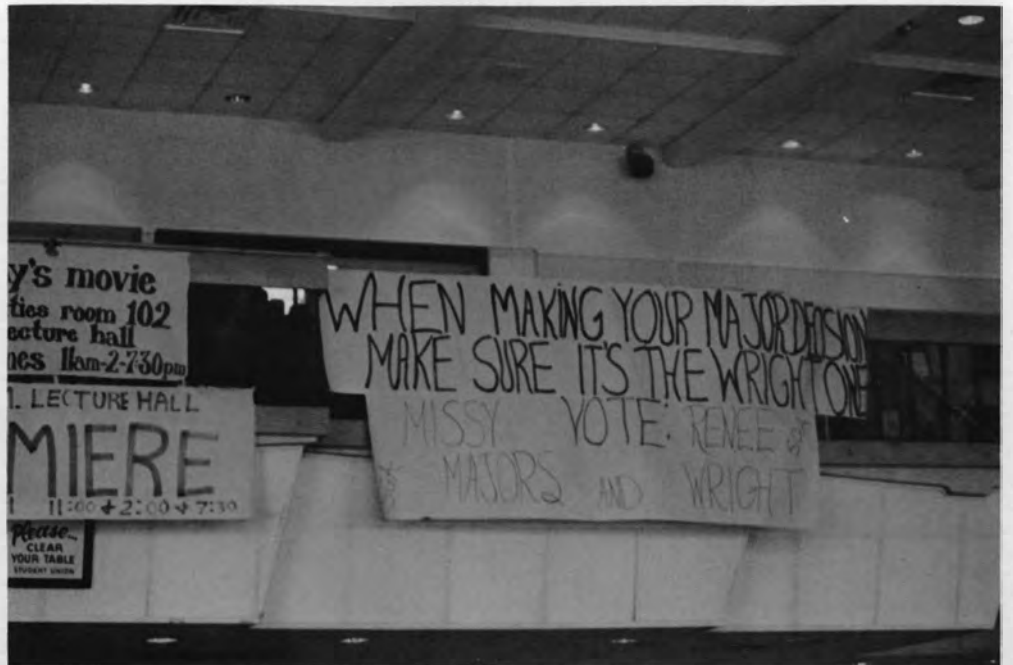 y's movie
ties room 102
ecture hall
mes 11am-2-7:30pm
M. LECTURE HALL
MIERE
11:00 + 2:00 + 7:30
Please...
CLEAR
YOUR TABLE
STUDENT UNION
WHEN MAKING YOUR MAJOR DECISION
MAKE SURE IT'S THE WRIGHT ONE
MISSY VOTE: RENEE
MAJORS AND WRIGHT